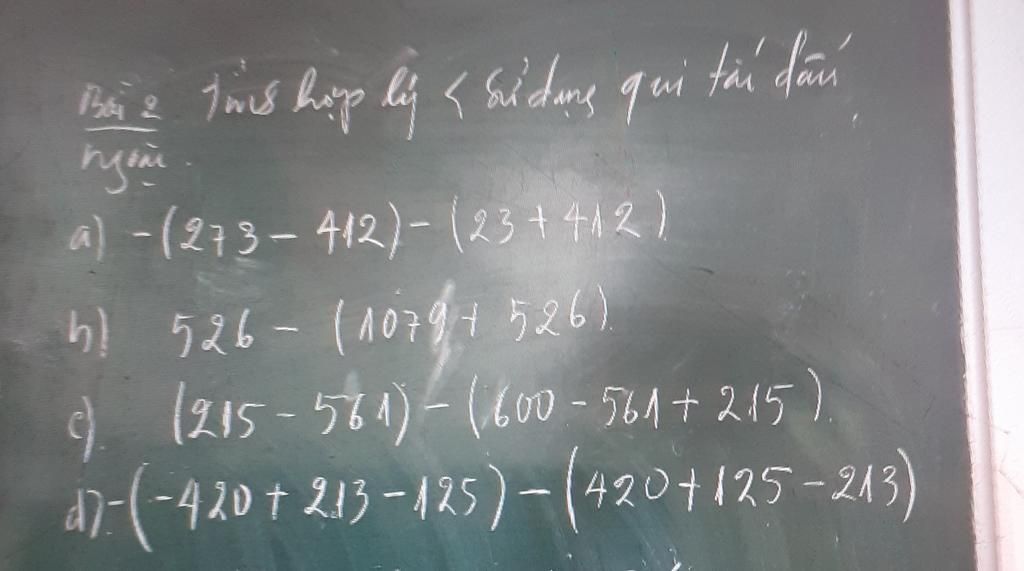 Bài 2 Tính hợp lý < Sử dụng qui tắc dấu
ngoặc.
a) -(273 - 412) - (23 + 412)
b) 526 - (1079 + 526).
c). (215 - 561) - (600 - 561 + 215).
d) -(-420 + 213 - 125) - (420 + 125 - 213)